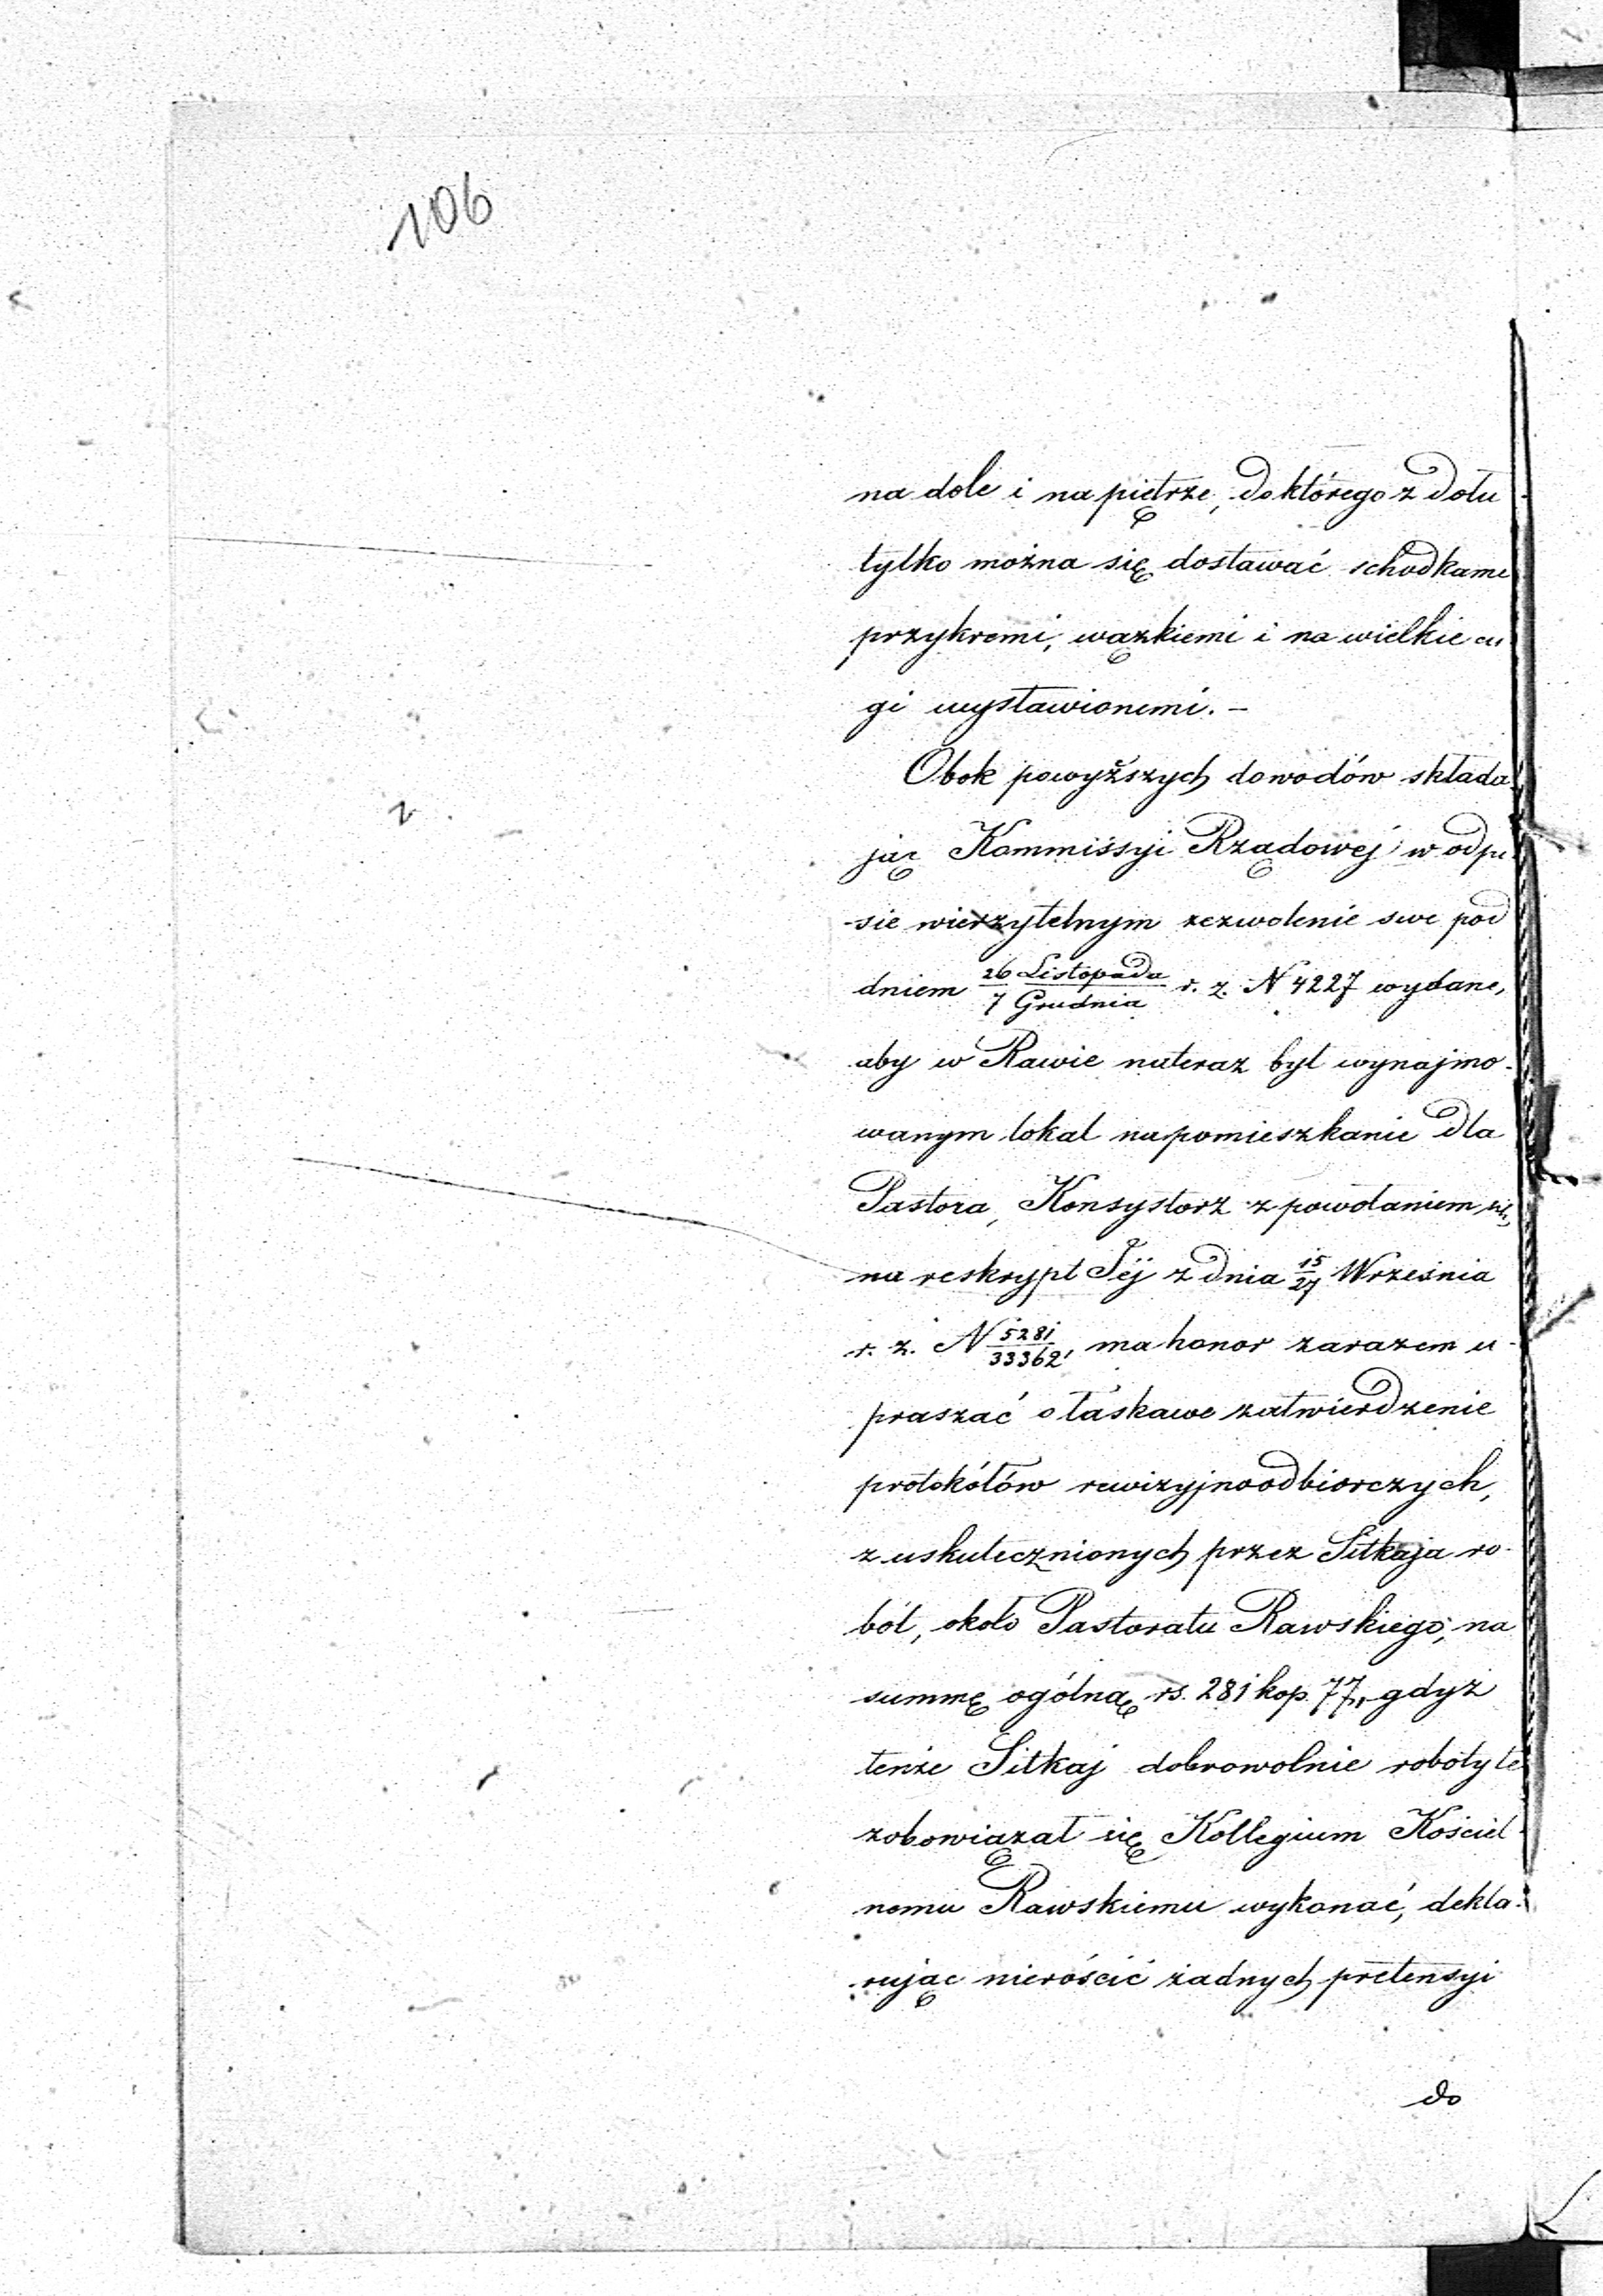 106
na dole i na piętrze, do którego z dołu
tylko można się dostawać schodkami
przykremi, wązkiemi i na wielkie cu
gi wystawionemi. –
Obok powyższych dowodów składa
jąc Kommissyi Rządowej w odpi
sie wierzytelnym zezwolenie swe pod
dniem 26 Listopada / 7 Grudnia r. z. N 4227 wydane,
aby w Rawie nateraz był wynajmo-
wanym lokal na pomieszkanie dla
Pastora, Konsystorz z powołaniem się
na reskrypt Jéj z dnia 15/27 Września
r. z. N 5281/33362, ma honor zarazem u-
praszać o łaskawe zatwierdzenie
protokółów rewizyjnoodbiorczych,
z uskutecznionych przez Sitkaja ro-
bót, około Pastoratu Rawskiego, na
summę ogólną rs. 281 kop. 77, gdyż
tenże Sitkaj dobrowolnie roboty te
zobowiązał się Kollegium Kościel-
nemu Rawskiemu wykonać, dekla-
rując nierościć żadnych pretensyi
do